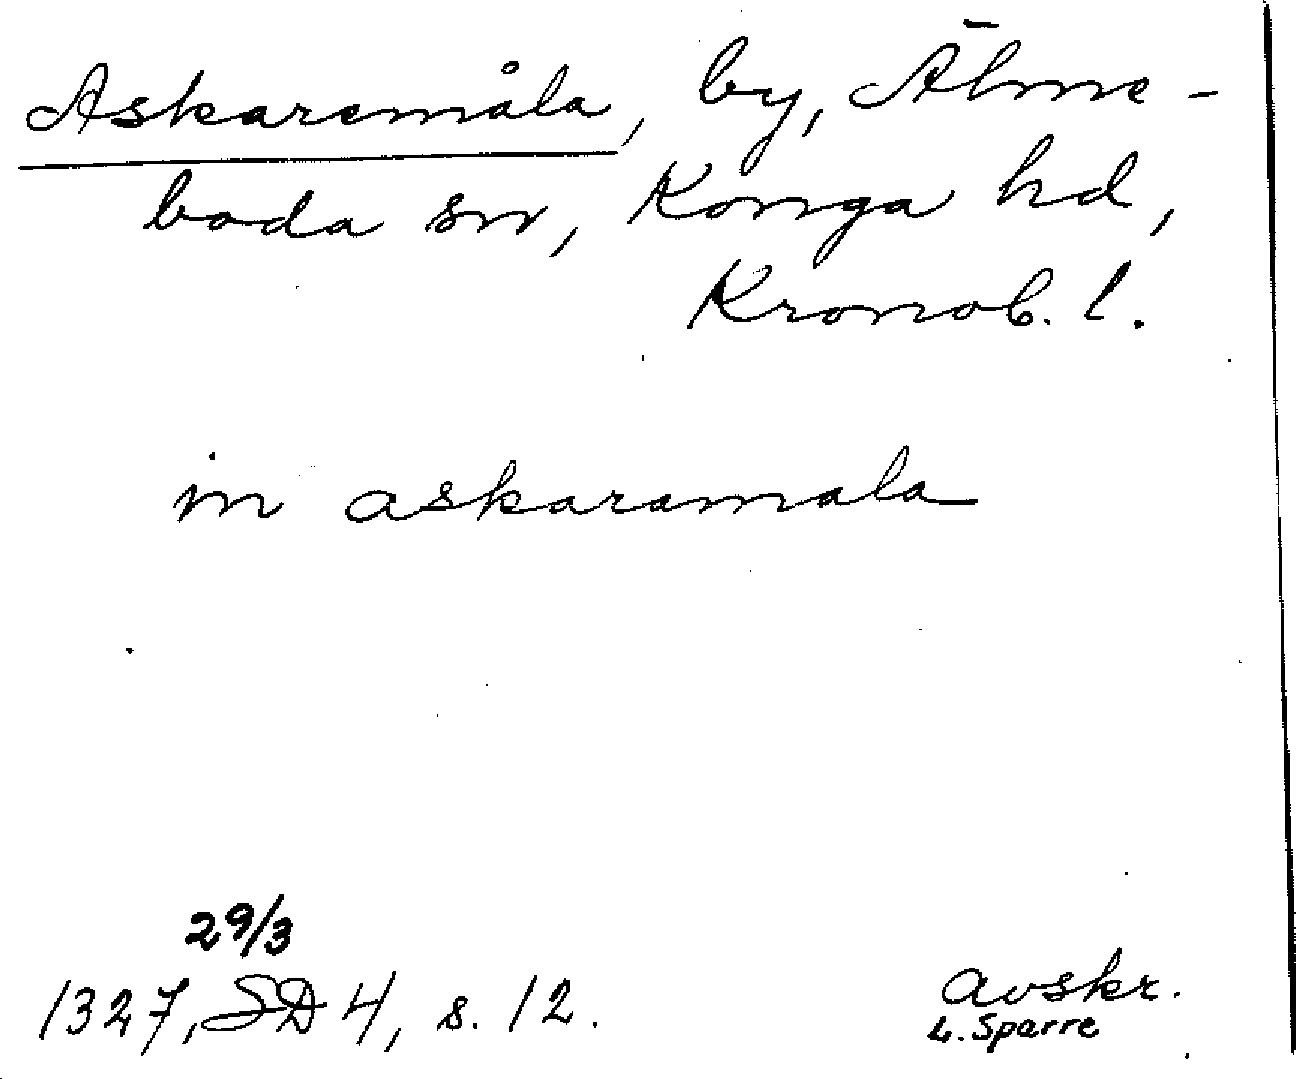 Askaremåla, by, Älme-
boda sn, Konga hd,
Kronob. l.
in askaramala
29/3
1327, SD 4, s. 12.
avskr.
L. Sparre